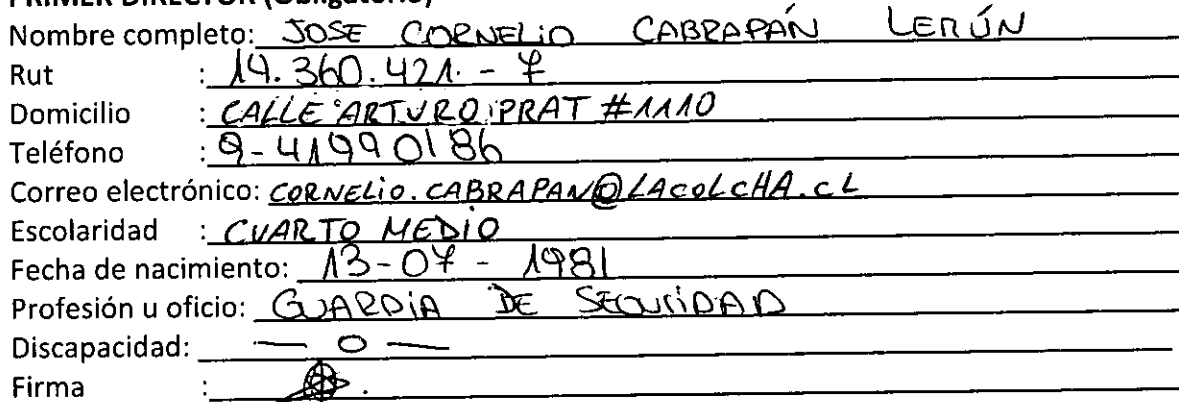 PRIMER DIRECTOR (Obligatorio)
Nombre completo: JOSE CORNELIO CABRAPÁN LERÚN
Rut : 14.360.421. - 7
Domicilio : CALLE ARTURO PRAT #1110
Teléfono : 9-41990186
Correo electrónico: CORNELIO.CABRAPAN@LACOLCHA.CL
Escolaridad : CUARTO MEDIO
Fecha de nacimiento: 13-07-1981
Profesión u oficio: GUARDIA DE SEGURIDAD
Discapacidad: — 0 —
Firma :